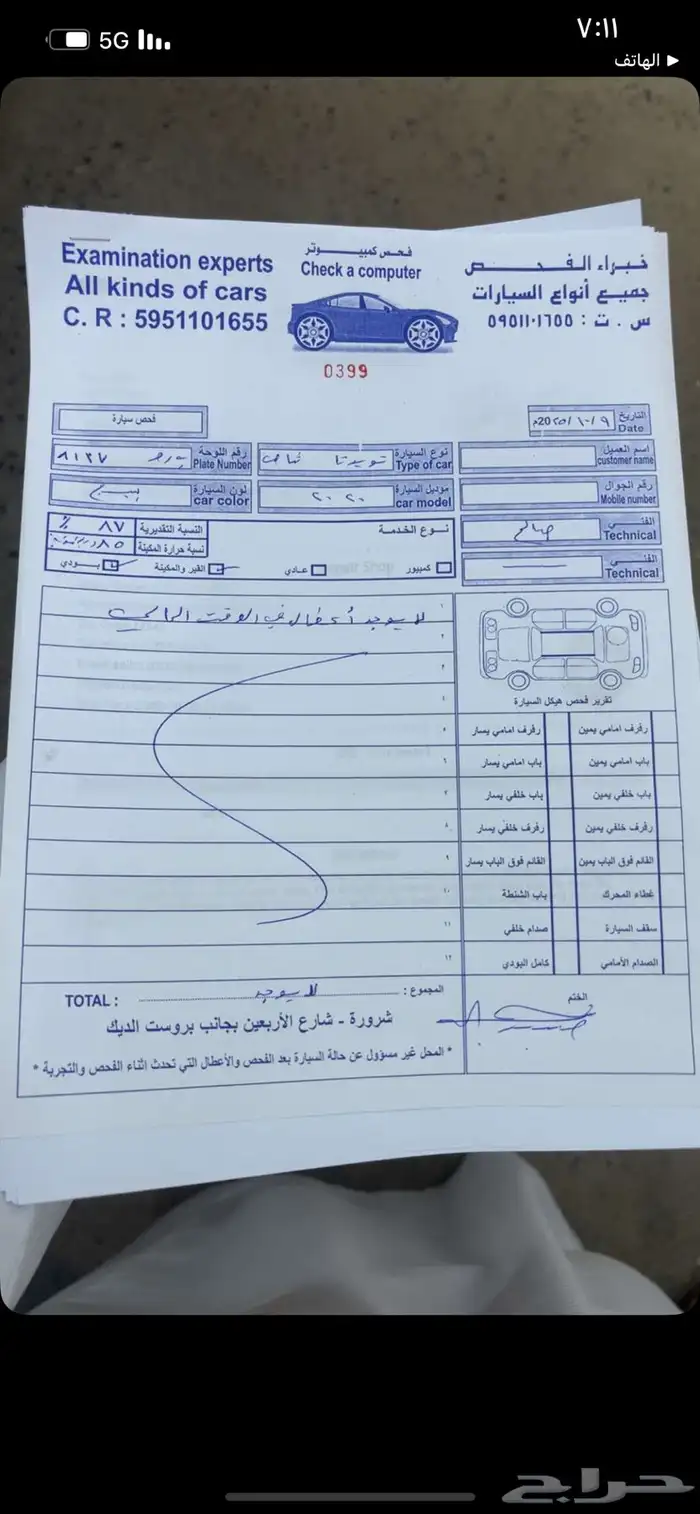 5G
٧:١١
الهاتف ◀
Examination experts
All kinds of cars
C. R : 5951101655
فحص كمبيوتر
Check a computer
خبراء الفحص
جميع أنواع السيارات
س . ت : ٥٩٥١١٠١٦٥٥
0399
فحص سيارة
التاريخ
Date
٢٠٢٥/١٠/٩م
رقم اللوحة
Plate Number
٨١٣٧
نوع السيارة
Type of car
تويوتا شاص
اسم العميل
customer name
لون السيارة
car color
بيج
موديل السيارة
car model
٢٠٢٠
رقم الجوال
Mobile number
النسبة التقديرية
٨٧ %
نسبة حرارة المكينة
٨٥
نوع الخدمة
الفني
Technical
صالح
كمبيور
عادي
القير والمكينة
بودي
الفني
Technical
١ لا يوجد أعطال في الوقت الحالي
٢
٣
٤
٥
٦
٧
٨
٩
١٠
١١
١٢
تقرير فحص هيكل السيارة
رفرف امامي يمين رفرف امامي يسار
باب امامي يمين باب امامي يسار
باب خلفي يمين باب خلفي يسار
رفرف خلفي يمين رفرف خلفي يسار
القائم فوق الباب يمين القائم فوق الباب يسار
غطاء المحرك باب الشنطة
سقف السيارة صدام خلفي
الصدام الأمامي كامل البودي
TOTAL : لا يوجد المجموع :
الختم
شرورة - شارع الأربعين بجانب بروست الديك
* المحل غير مسؤول عن حالة السيارة بعد الفحص والأعطال التي تحدث اثناء الفحص والتجربة *
حراج